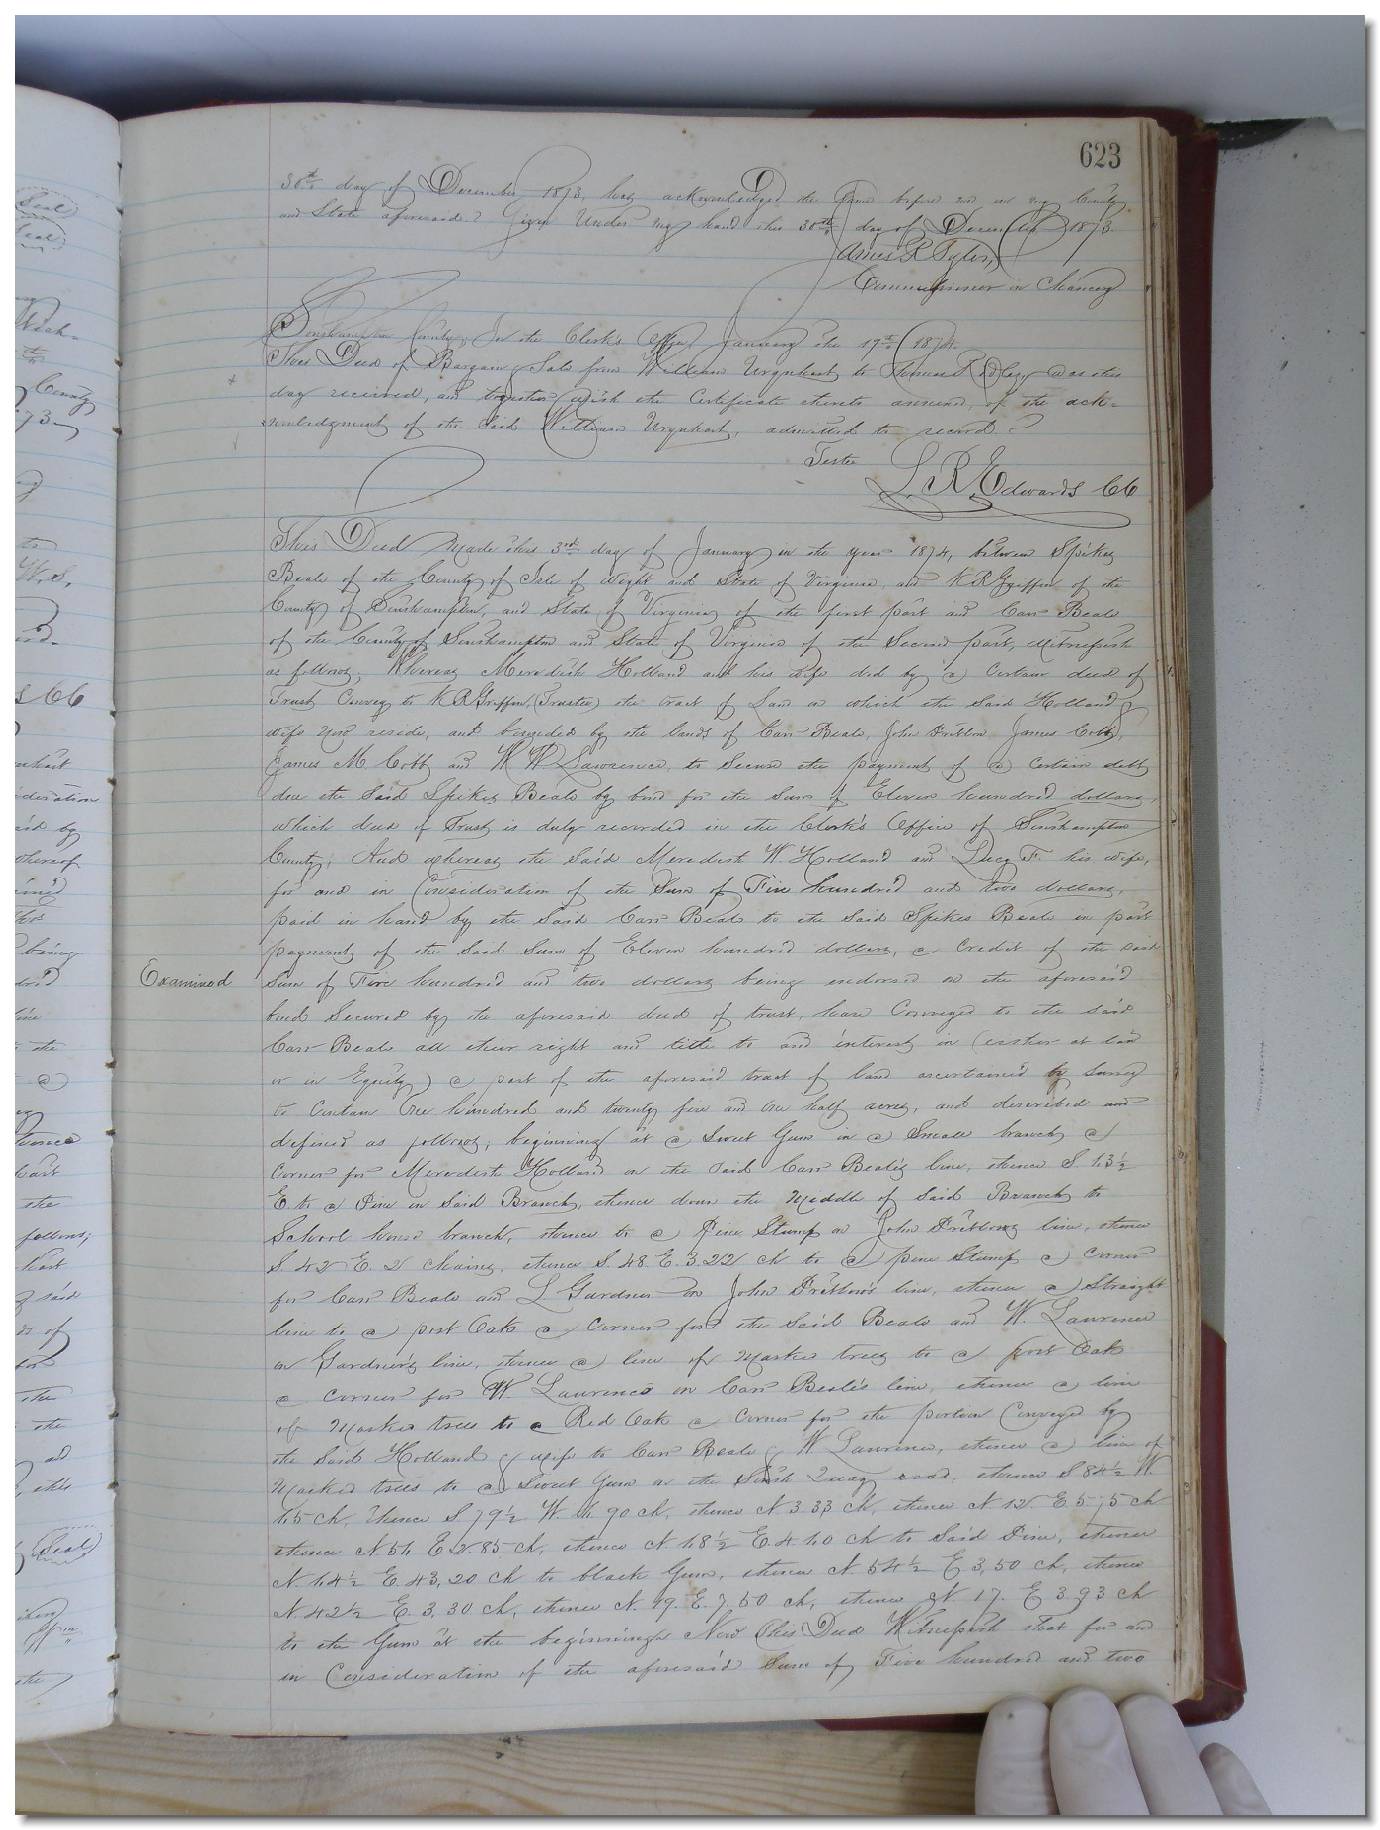 623
30th day of December 1873, has acknowledged the same before me in my County
and State aforesaid. Given Under my hand this 30th day of December 1873.
James R Tyler,
Commissioner in Chancery
Southampton County, In the Clerk's Office January the 19th 1874.
This Deed of Bargain & Sale from William Urquhart to was this
day received, and together with the Certificate thereto annexed, of the ack=
nowledgment of the said William Urquhart, admitted to record.
Teste
L. R. Edwards CC
This Deed Made this 3rd day of January in the year 1874, between Spikes
Beale of the County of Isle of Wight and State of Virginia, and K R Griffin of the
County of Southampton, and State of Virginia of the first part and Carr Beale
of the County of Southampton and State of Virginia of the Second part, Witnesseth
as follows, Whereas Meredith Holland and his wife did by a Certain deed of
Trust Convey to K R Griffin, (Trustee) the tract of Land on which the Said Holland &
wife now reside, and bounded by the lands of Carr Beale, John Pretlow James Cobb,
James M Cobb and W W Lawrence, to Secure the payment of a Certain debt
due the Said Spikes Beale by bond for the Sum of Eleven hundred dollars,
which deed of Trust is duly recorded in the Clerk's Office of Southampton
County; And whereas the Said Meredith W. Holland and Lucy F. his wife,
for and in Consideration of the Sum of Five hundred and two dollars,
paid in hand by the Said Carr Beale to the Said Spikes Beale in part
payment of the Said Sum of Eleven hundred dollars, a Credit of the said
Examined
Sum of Five hundred and two dollars being endorsed on the aforesaid
bond Secured by the aforesaid deed of trust, have Conveyed to the said
Carr Beale all their right and title to and interest in (either at law
or in Equity) a part of the aforesaid tract of land ascertained by Survey
to Contain One hundred and twenty five and one half acres, and described and
defined as follows; beginning at a Sweet Gum in a Small branch a
Corner for Meredith Holland on the Said Carr Beale's line, thence S. 13½
E to a Pine in Said Branch, thence down the Middle of Said Branch to
School house branch, thence to a Pine Stump on John Pretlow's line, thence
S. 42 E. 2 chains, thence S. 48. E. 3.22 ch to a pine Stump a corner
for Carr Beale and L Gardner on John Pretlow's line, thence a Straight
line to a post Oak a Corner for the Said Beale and W. Lawrence
on Gardner's line, thence a line of marked trees to a post Oak
a corner for W. Lawrence on Carr Beale's line, thence a line
of Marked trees to a Red Oak a Corner for the portion Conveyed by
the Said Holland & wife to Carr Beale & W Lawrence, thence a line of
Marked trees to a Sweet Gum on the South Quay road, thence S 84½ W.
15 ch, thence S 79½ W. 90 ch, thence N 3 33 ch, thence N 12 E 5.75 ch
thence N. 51 E 2.85 ch, thence N 18½ E. 4.10 ch to Said Pine, thence
N. 14½ E. 43,20 ch to black Gum, thence N. 54½ E 3,50 ch, thence
N. 42½ E. 3,30 ch, thence N. 19. E. 7,50 ch, thence N. 17. E 3.93 ch
to the Gum at the beginning. Now this Deed Witnesseth that for and
in Consideration of the aforesaid Sum of Five hundred and two